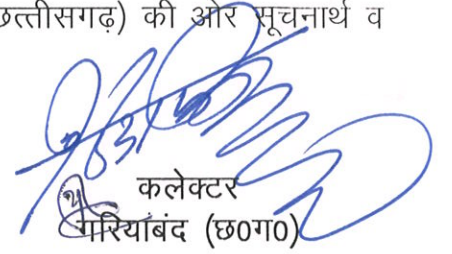 छत्तीसगढ़) की ओर सूचनार्थ व
कलेक्टर
गरियाबंद (छ0ग0)